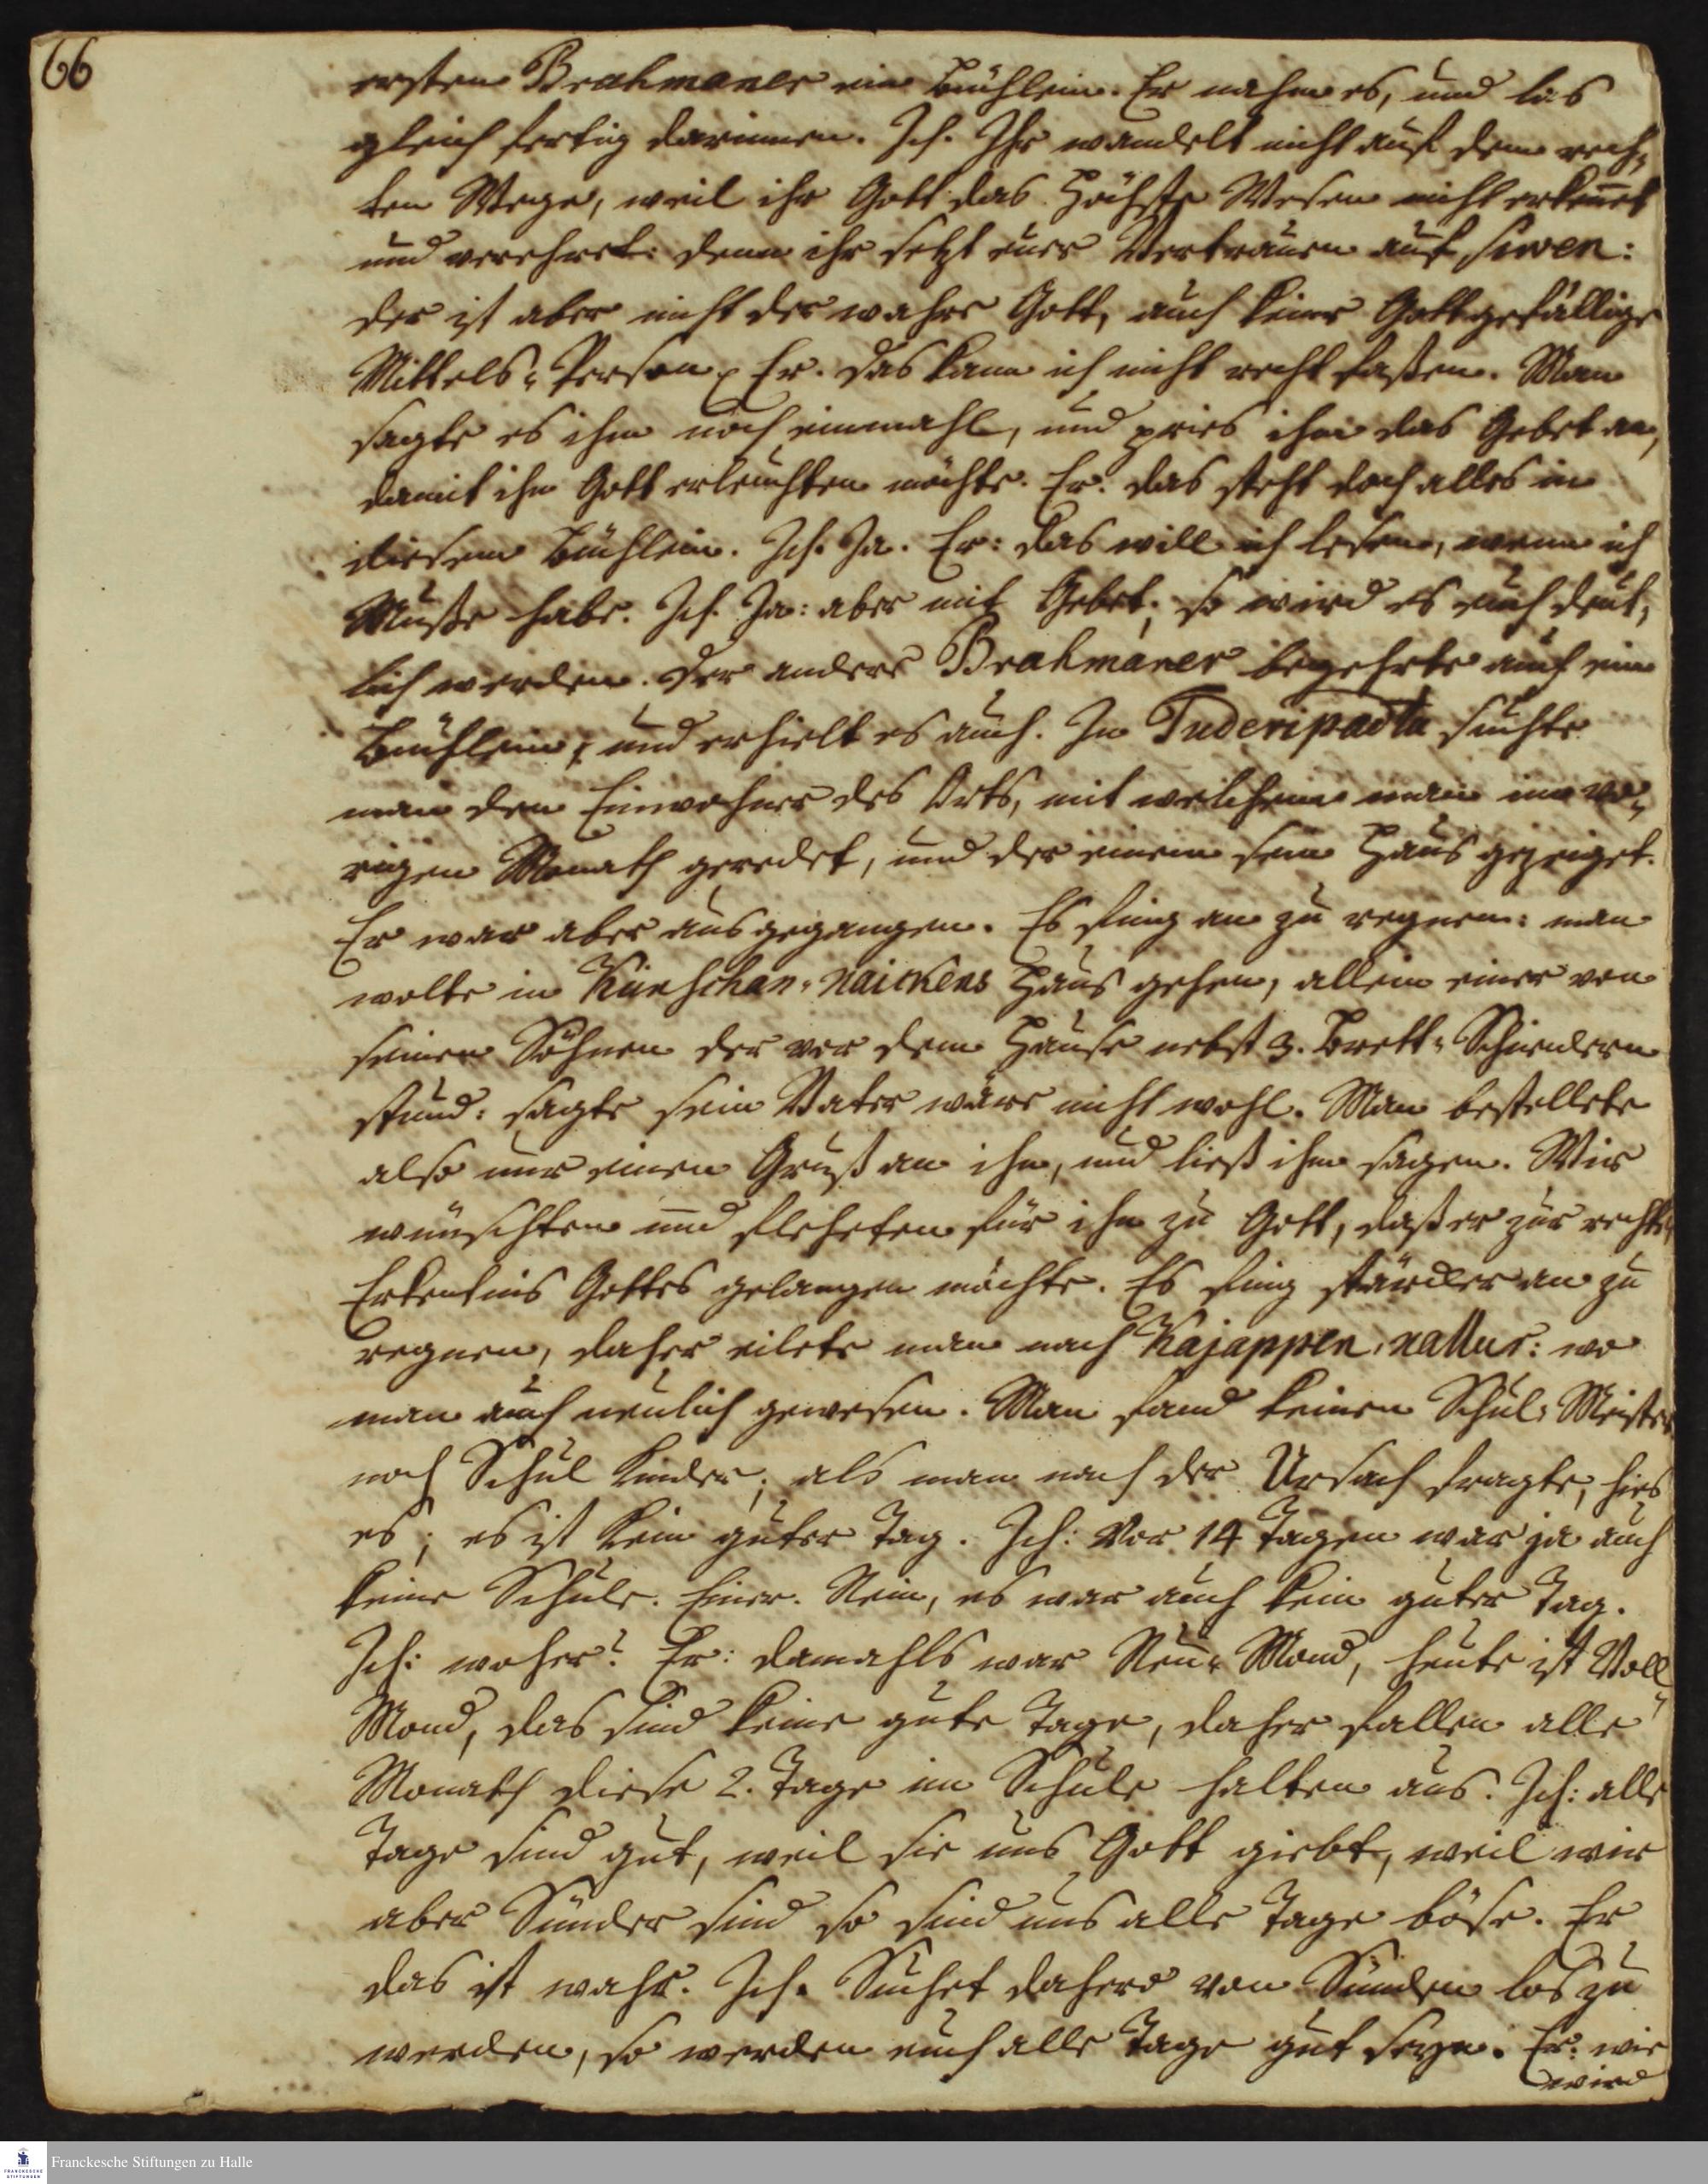 66
ersten Brahmaner ein Büchlein. Er nahm es, und las
gleich fertig darinnen. Ich. Ihr wandelt nicht auf dem rech„
ten Wege, weil ihr Gott das Höchste Wesen nicht erkennet
und verehret: denn ihr setzt euer Vertrauen auf siwen:
der ist aber nicht der wahre Gott, auch keine Gottgefällige
Mittels-Person. Er. das kann ich nicht recht faßen. Man
sagte es ihm noch einmahl, und pries ihm das Gebet an,
damit ihn Gott erleuchten möchte. Er: das steht doch alles in
diesem Büchlein. Ich. Ja. Er: das will ich lesen, wenn ich
Muße habe. Ich. Ja: aber mit Gebet; so wird es euch deut„
lich werden. Der andere Brahmaner begehrte auch ein
Büchlein, und erhielt es auch. In Tuderipaötta suchte
man den Einwohner des Orts, mit welchem man im vo„
rigen Monath geredet, und der einem sein Haus gezeiget.
Er war aber ausgegangen. Es fing an zu regnen: man
wolte in Künschan-naickens Haus gehen, allein einer von
seinen Söhnen der vor dem Hause nebst 3. Brett-Schneidern
stund: sagte sein Vater wäre nicht wohl. Man bestellete
also nur einen Gruß an ihn, und ließ ihm sagen. Wir
wünschten und fleheten für ihn zu Gott, daß er zur rechten
Erkentnis Gottes gelangen möchte. Es fing stärcker an zu
regnen, daher eilete man nach Kajappen-nallur: wo
man auch neulich gewesen. Man fand keinen Schul-Meister
noch Schul Kinder; als man nach der Ursach fragte, hies
es; es ist kein guter Tag. Ich: Vor 14 Tagen war ja auch
keine Schule. Einer. Nein, es war auch kein guter Tag.
Ich: woher? Er: damahls war Neu-Mond, heute ist Voll„
Mond, das sind keine gute Tage, daher fallen alle
Monath diese 2. Tage im Schule halten aus. Ich: alle
Tage sind gut, weil sie uns Gott giebt, weil wir
aber Sünder sind so sind uns alle Tage böse. Er
das ist wahr. Ich. Suchet dahero von Sünden los zu
werden, so werden euch alle Tage gut seyn. Er: wie
wird
Franckesche Stiftungen zu Halle
FRANCKESCHE
STIFTUNGEN